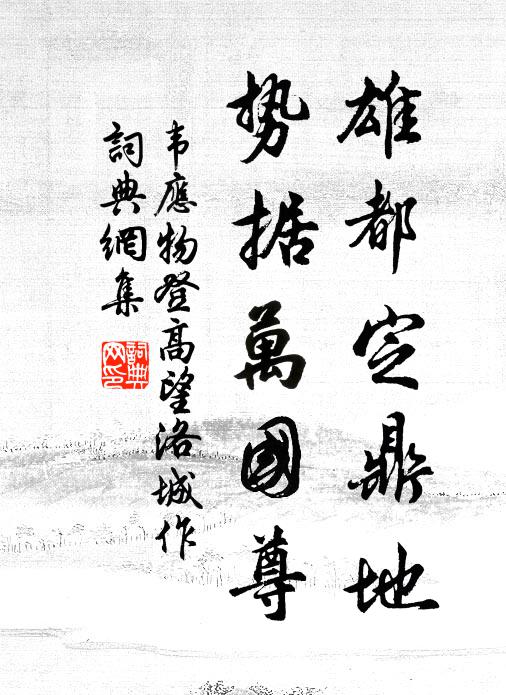 雄都定鼎地
勢据萬國尊
韦應物登高望洛城作
詞典網集
詞典
网印